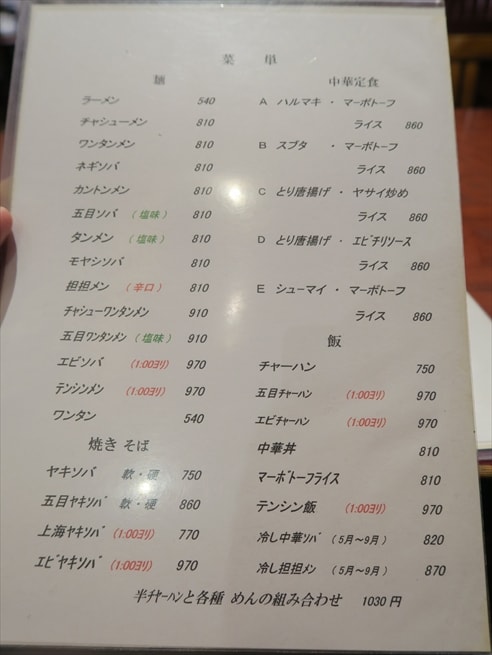 菜 単
麺
ラーメン 540
チャシューメン 810
ワンタンメン 810
ネギソバ 810
カントンメン 810
五目ソバ (塩味) 810
タンメン (塩味) 810
モヤシソバ 810
担担メン (辛口) 810
チャシューワンタンメン 910
五目ワンタンメン (塩味) 910
エビソバ (1:00ヨリ) 970
テンシンメン (1:00ヨリ) 970
ワンタン 540
焼き そば
ヤキソバ 軟・硬 750
五目ヤキソバ 軟・硬 860
上海ヤキソバ (1:00ヨリ) 770
エビヤキソバ (1:00ヨリ) 970
中華定食
A ハルマキ ・ マーボトーフ
ライス 860
B スブタ ・ マーボトーフ
ライス 860
C とり唐揚げ ・ ヤサイ炒め
ライス 860
D とり唐揚げ ・ エビチリソース
ライス 860
E シューマイ ・ マーボトーフ
ライス 860
飯
チャーハン 750
五目チャーハン (1:00ヨリ) 970
エビチャーハン (1:00ヨリ) 970
中華丼 810
マーボトーフライス 810
テンシン飯 (1:00ヨリ) 970
冷し中華ソバ (5月〜9月) 820
冷し担担メン (5月〜9月) 870
半チャーハンと各種 めんの組み合わせ 1030 円